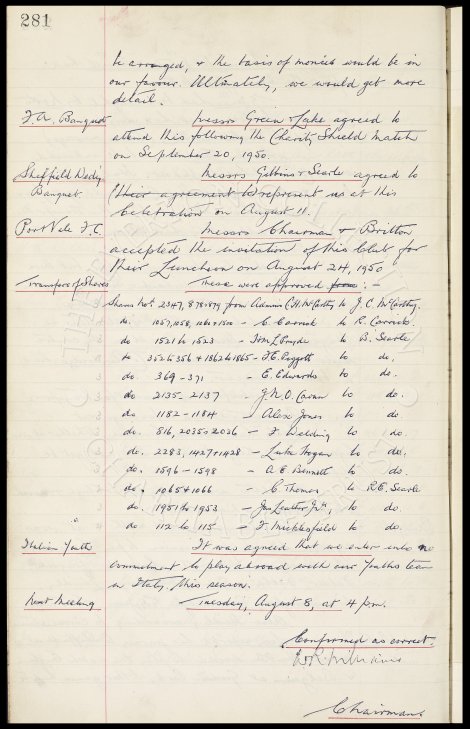 281
be arranged, & the basis of monies would be in
our favour. Ultimately, we would get more
detail.
F.A. Banquet Messrs Green & Lake agreed to
attend this following the Charity Shield Match
on September 20, 1950.
Sheffield Wedy Messrs Gibbins & Searle agreed to
Banquet. (their agreement to) represent us at this
Celebration on August 11.
Port Vale F.C. Messrs Chairman & Britton
accepted the invitation of this Club for
their Luncheon on August 24, 1950
Transfer of Shares These were approved from: -
Shares Nos. 2347, 878 & 879 from Admin C.H. McCarthy to J.C. McCarthy.
do. 1057, 1058, 1160 & 1500 - C. Carrick to R. Carrick.
do 1521 to 1523 - to B. Searle
do 352 to 356 & 1862 to 1865 - F.C. Poggett to do.
do 369 - 371 - E. Edwards to do.
do 2135 - 2137 - J.N.O. Cavan to do.
do 1182 - 1184 - Alex Jones to do
do. 816, 2035 & 2036 - F. Welding to do.
do. 2283, 1427 & 1428 - Luke Hogan to do.
do. 1596 - 1598 - A E Bennett to do.
do. 1065 & 1066 - C Thomas to R.E. Searle
do. 1951 to 1953 - Jas Leather to do.
do 112 to 115 - F. Micklesfield to do.
Italian Youths It was agreed that we enter into no
commitment to play abroad with our Youths team
in Italy this season.
Next Meeting Tuesday, August 8, at 4 pm.
Confirmed as correct.
Chairman.